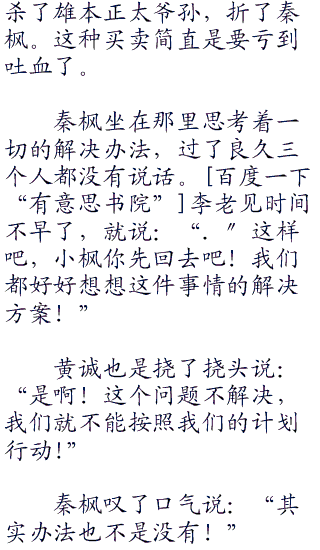 杀了雄本正太爷孙，折了秦
枫。这种买卖简直是要亏到
吐血了。
秦枫坐在那里思考着一
切的解决办法，过了良久三
个人都没有说话。[百度一下
“有意思书院”]李老见时间
不早了，就说：“．〞这样
吧，小枫你先回去吧！我们
都好好想想这件事情的解决
方案！”
黄诚也是挠了挠头说：
“是啊！这个问题不解决，
我们就不能按照我们的计划
行动！”
秦枫叹了口气说：“其
实办法也不是没有！”